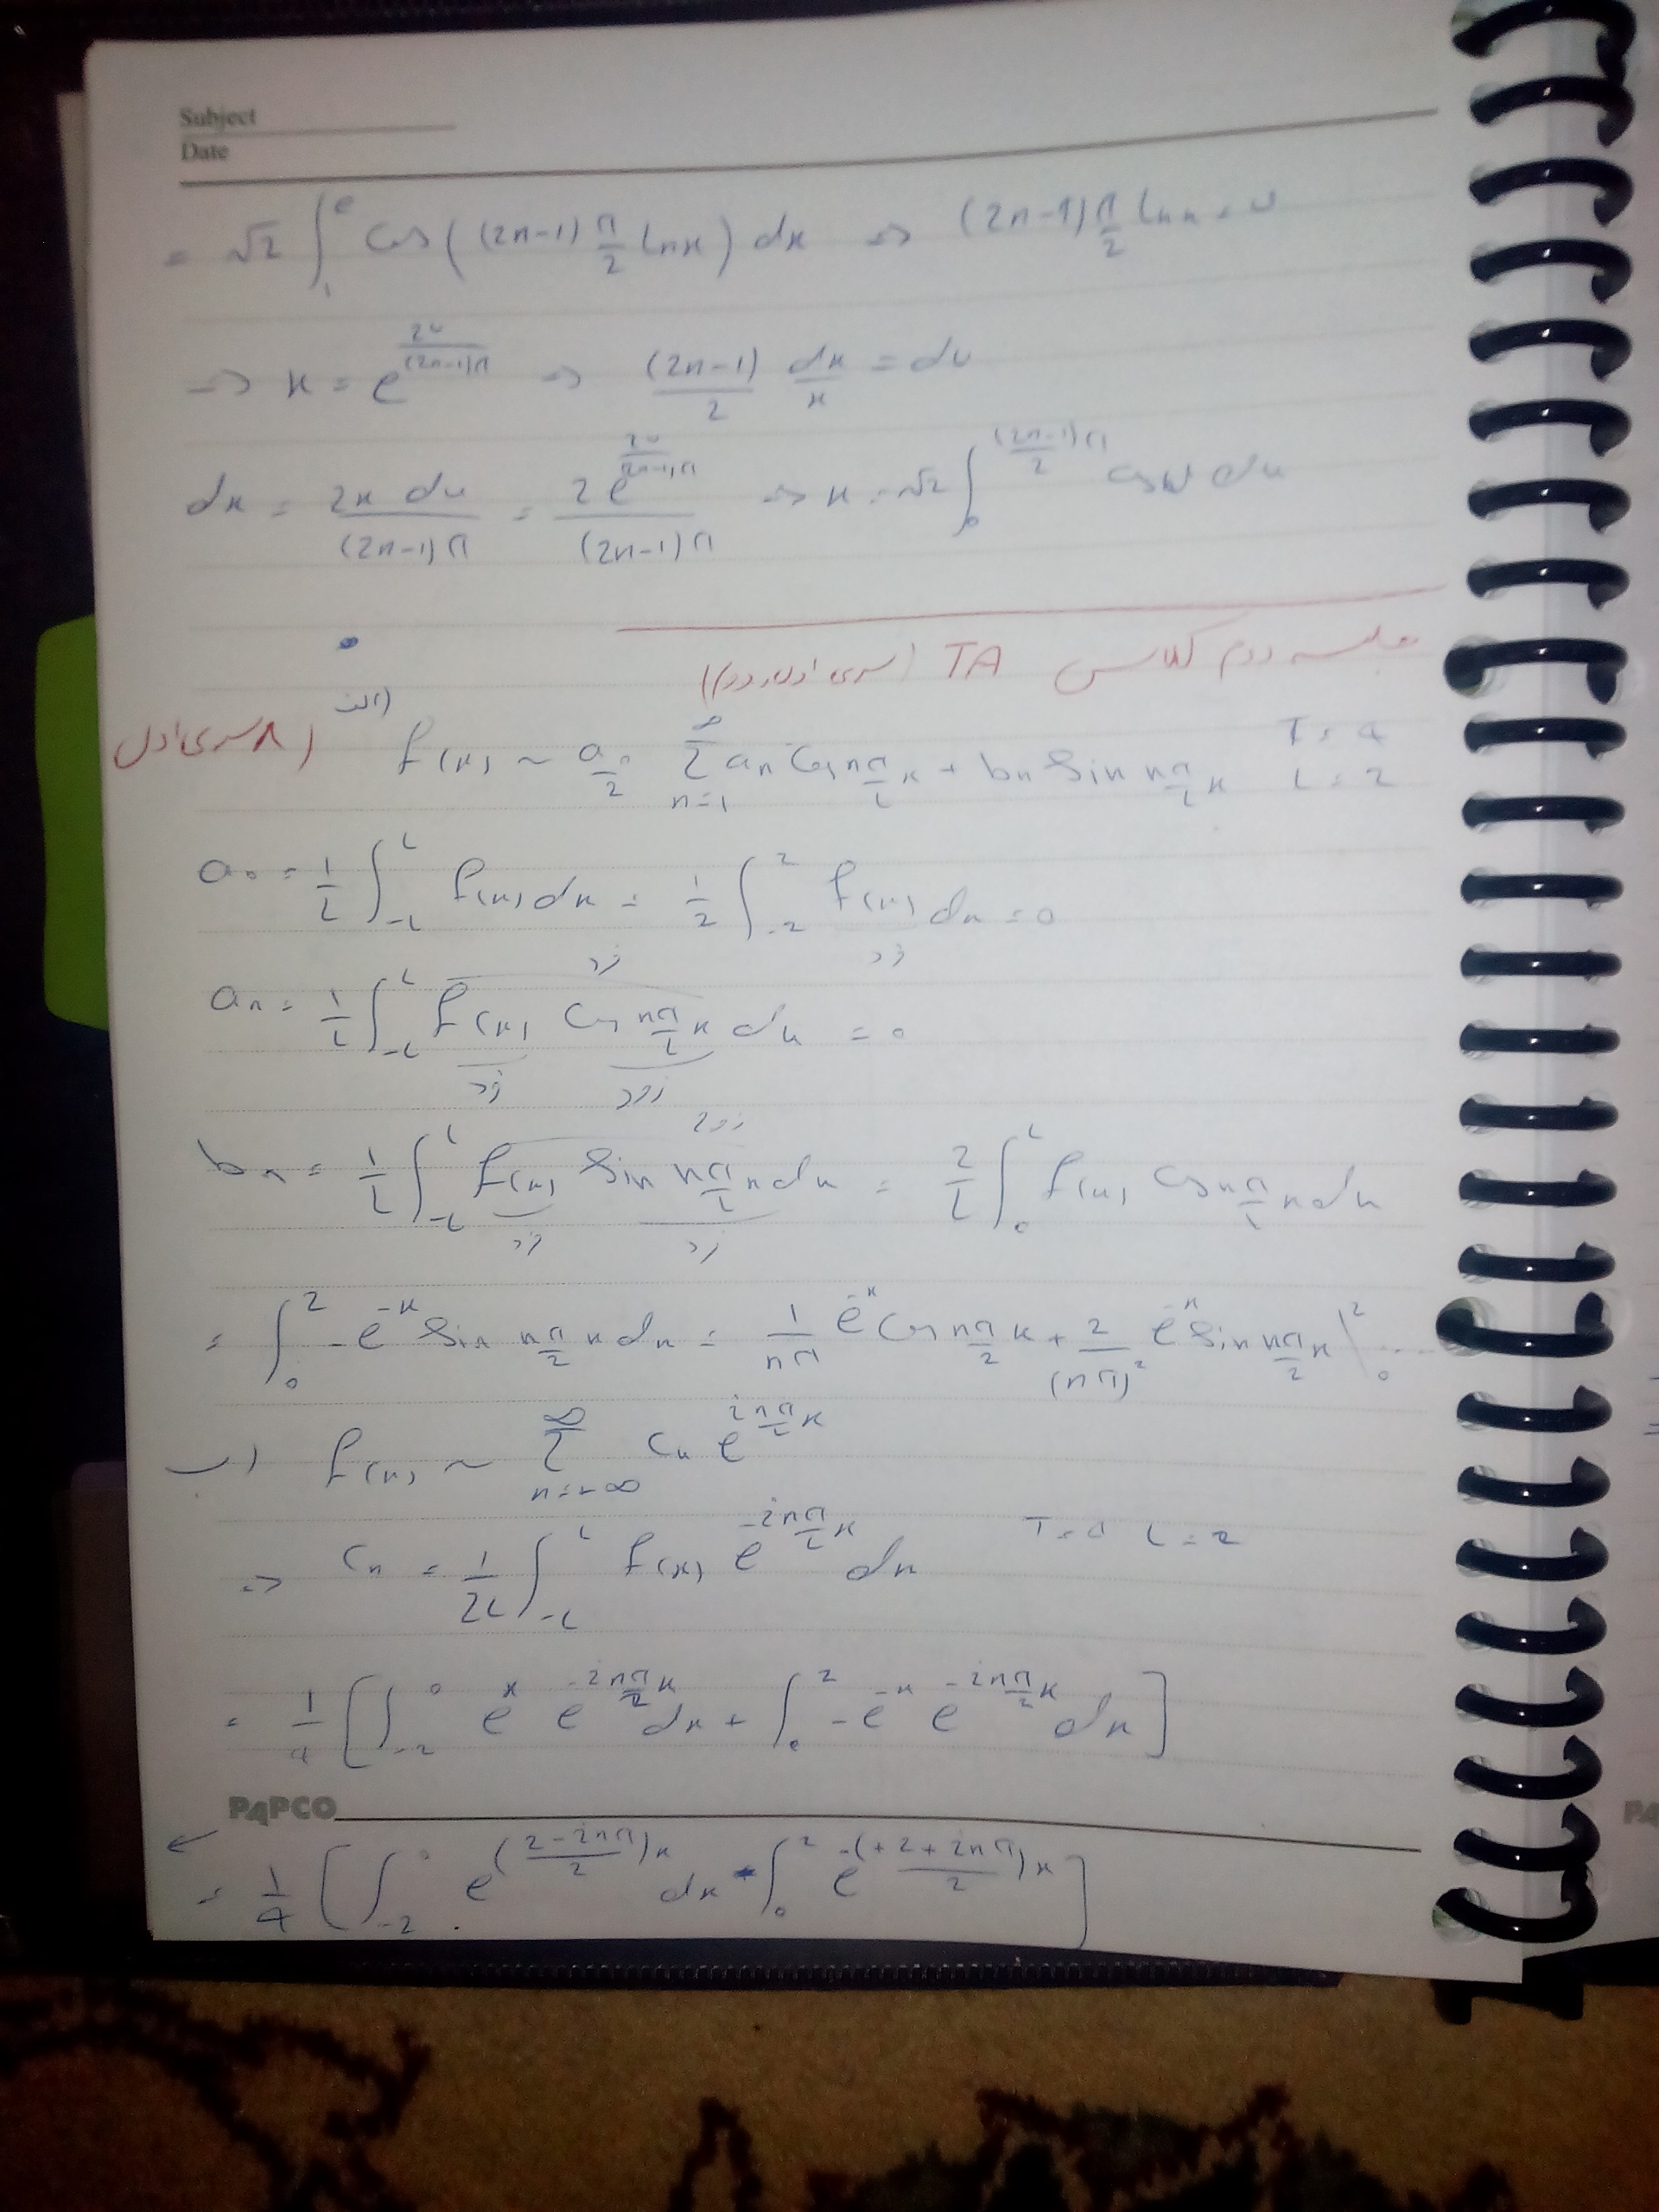 Subject
Date
= √2 ∫₁^e Cos((2n-1) π/2 lnx) dx ⇒ (2n-1) π/2 lnx = u
⇒ x = e^(2u/((2n-1)π)) ⇒ (2n-1)/2 dx/x = du
dx = 2x du/((2n-1)π) = 2e^(2u/((2n-1)π))/((2n-1)π) ⇒ x = √2 ∫₀^((2n-1)π/2) cosu du
جلسه دوم کلاس TA (سری اول و دوم)
۸ سری اول) الف) f(x) ~ a₀/2 ∑_{n=1}^∞ an Cos nπ/L x + bn Sin nπ/L x T = 4 L = 2
a₀ = 1/L ∫_{-L}^L f(x) dx = 1/2 ∫_{-2}^2 f(x) dx = 0
فرد
فرد
an = 1/L ∫_{-L}^L f(x) Cos nπ/L x dx = 0
فرد زوج
زوج
bn = 1/L ∫_{-L}^L f(x) Sin nπ/L x dx = 2/L ∫₀^L f(x) Cos nπ/L x dx
فرد فرد
= ∫₀^2 -e^(-x) Sin nπ/2 x dx = 1/nπ e^(-x) Cos nπ/2 x + 2/(nπ)² e^(-x) Sin nπ/2 x |₀^2 ....
ب) f(x) ~ ∑_{n=-∞}^∞ cn e^(inπ/L x)
⇒ cn = 1/2L ∫_{-L}^L f(x) e^(-inπ/L x) dx T = 4 L = 2
= 1/4 [∫_{-2}^0 e^x e^(-inπ/2 x) dx + ∫₀^2 -e^(-x) e^(-inπ/2 x) dx]
PAPCO
← = 1/4 [∫_{-2}^0 e^((2-inπ)/2)x dx - ∫₀^2 e^-((+2+inπ)/2)x]